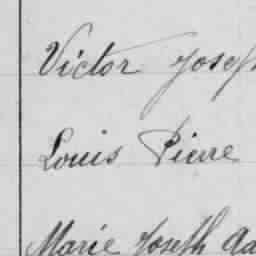 Victor Joseph
Louis Pierre
Marie Joseph